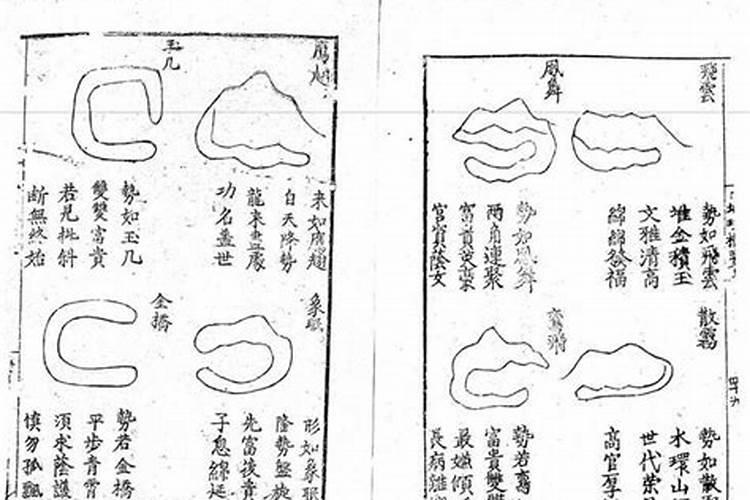 飛雲
勢如飛雲
堆金積玉
文雅清高
綿綿發福
鳳舞
勢如鳳舞
兩角連聚
富貴
官資蔭女
散霧
勢如散
水環山
世代榮
高官厚
勢若
富貴雙
最嫌傾
長病
鷹
來如鷹
白天降勢
龍來
功名蓋世
玉几
勢如玉几
雙雙富貴
若見批斜
斷無終始
象眠
形如象眠
隆勢盤旋
先富後貴
子息綿延
金橋
勢若金橋
平步青霄
須求蔭護
慎勿孤飄